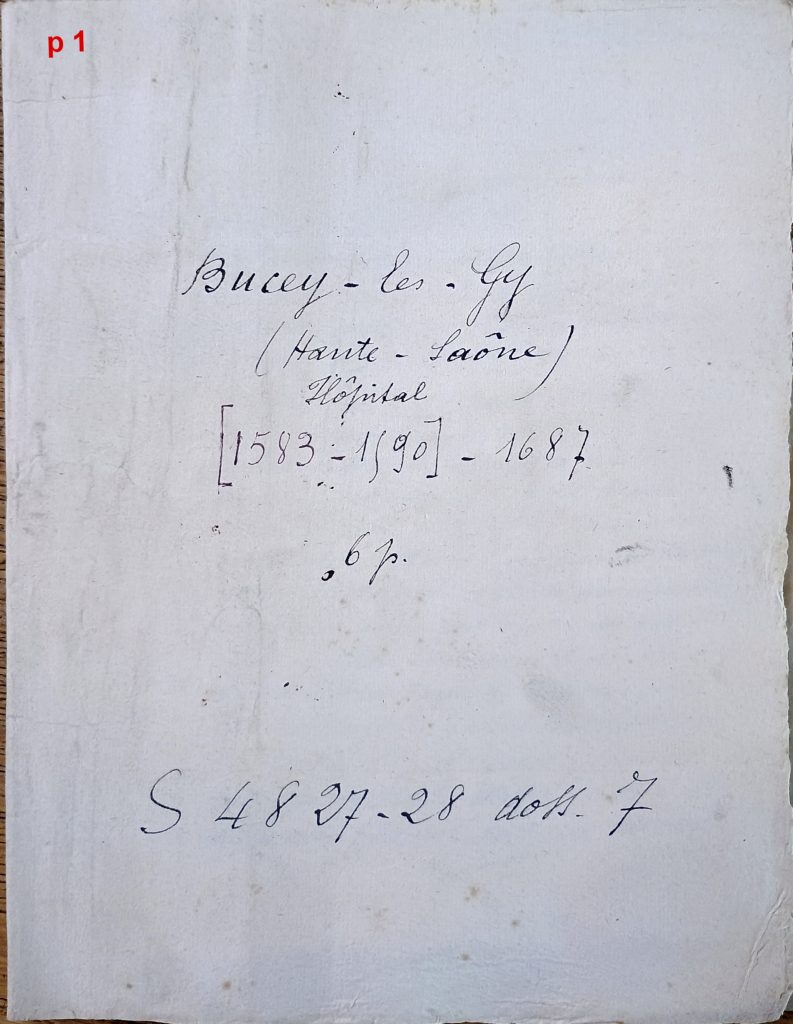 p 1
Bucey-les-Gy
(Haute-Saône)
Hôpital
[1583-1590]-1687
6 p.
S 4827-28 doss. 7